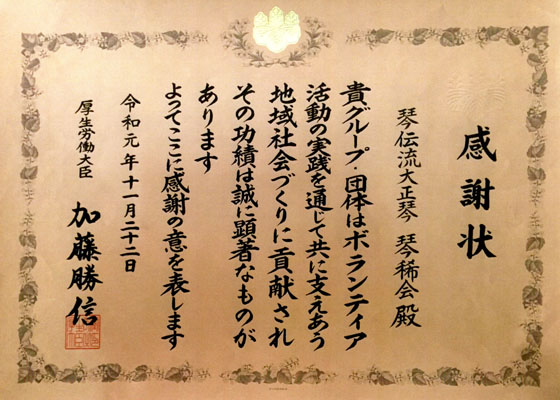 感謝状
琴伝流大正琴 琴稀会殿
貴グループ・団体はボランティア
活動の実践を通じて共に支えあう
地域社会づくりに貢献され
その功績は誠に顕著なものが
あります
よってここに感謝の意を表します
令和元年十一月二十二日
厚生労働大臣 加藤勝信